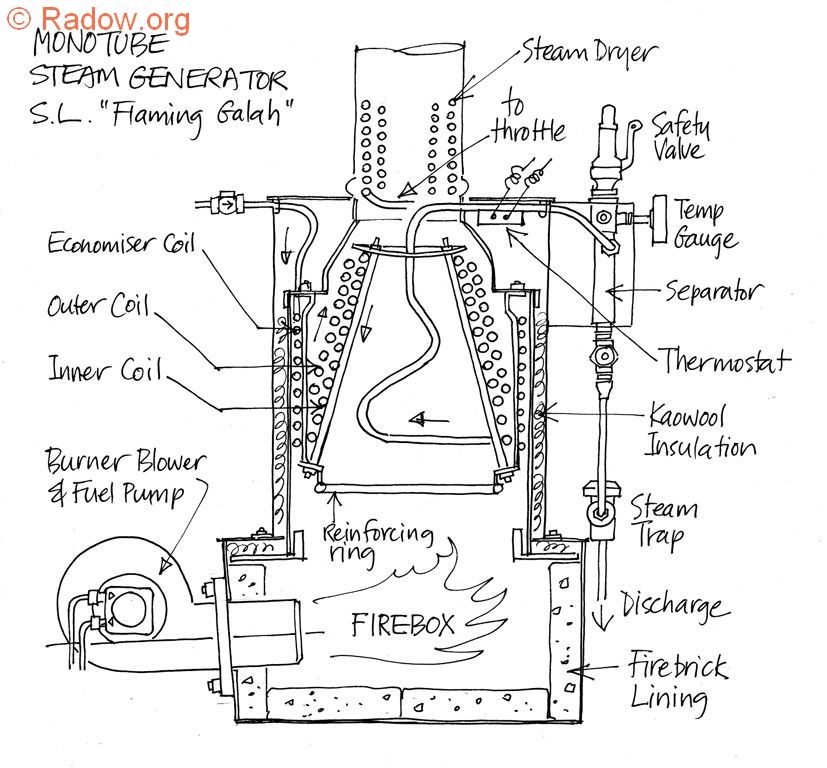 © Radow.org
MONOTUBE
STEAM GENERATOR
S.L. "Flaming Galah"
Steam Dryer
to
throttle
Safety
Valve
Temp
Gauge
Economiser Coil
Separator
Outer Coil
Thermostat
Inner Coil
Kaowool
Insulation
Burner Blower
& Fuel Pump
Steam
Trap
Reinforcing
ring
Discharge
FIREBOX
Firebrick
Lining